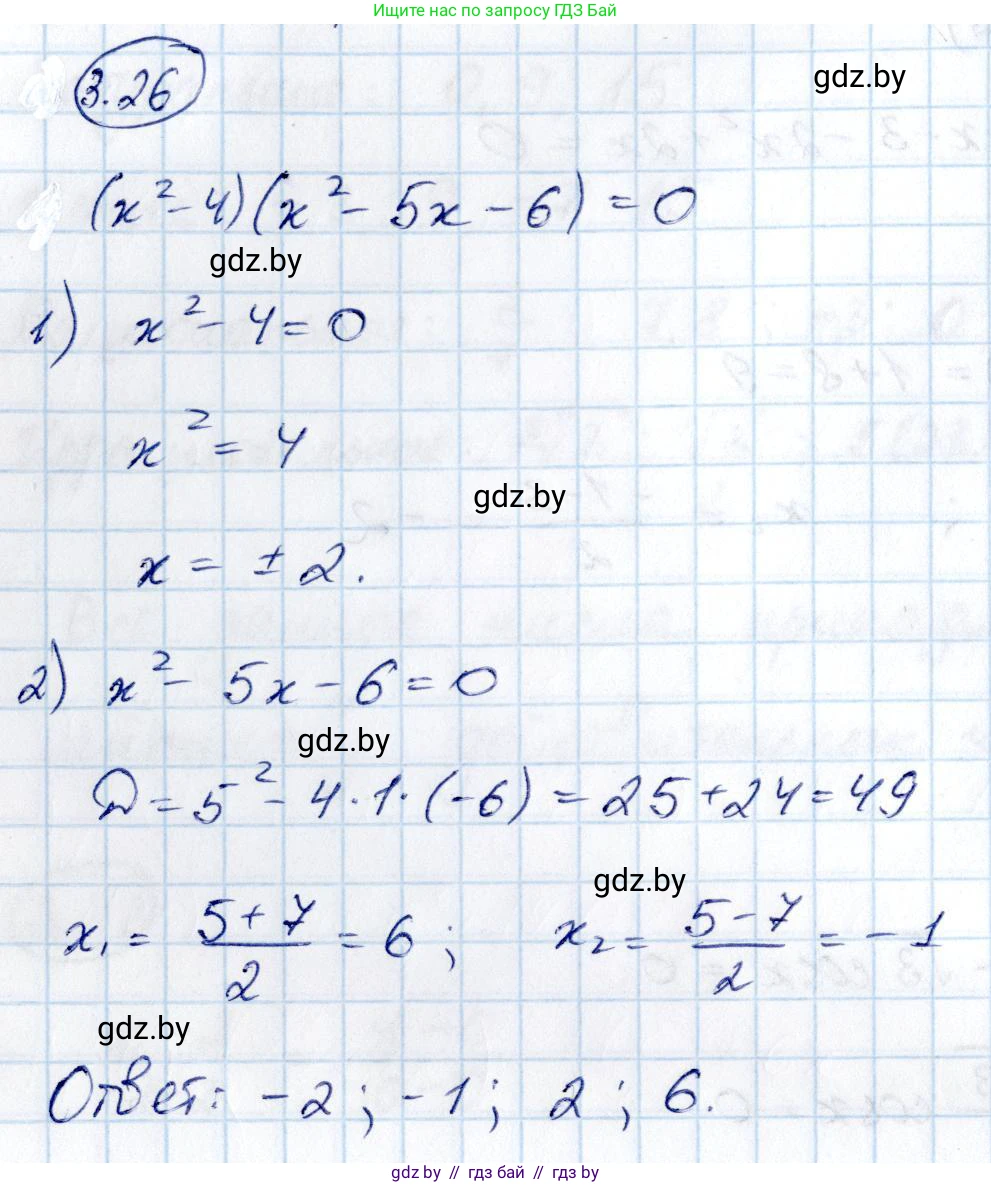 Ищите нас по запросу ГДЗ Бай
3.26
gdz.by
(x² - 4)(x² - 5x - 6) = 0
gdz.by
1) x² - 4 = 0
x² = 4
gdz.by
x = ± 2.
2) x² - 5x - 6 = 0
gdz.by
D = 5² - 4 · 1 · (-6) = 25 + 24 = 49
gdz.by
x₁ = (5 + 7)/2 = 6 ; x₂ = (5 - 7)/2 = - 1
gdz.by
Ответ: - 2 ; - 1 ; 2 ; 6.
gdz.by // гдз бай // гдз by